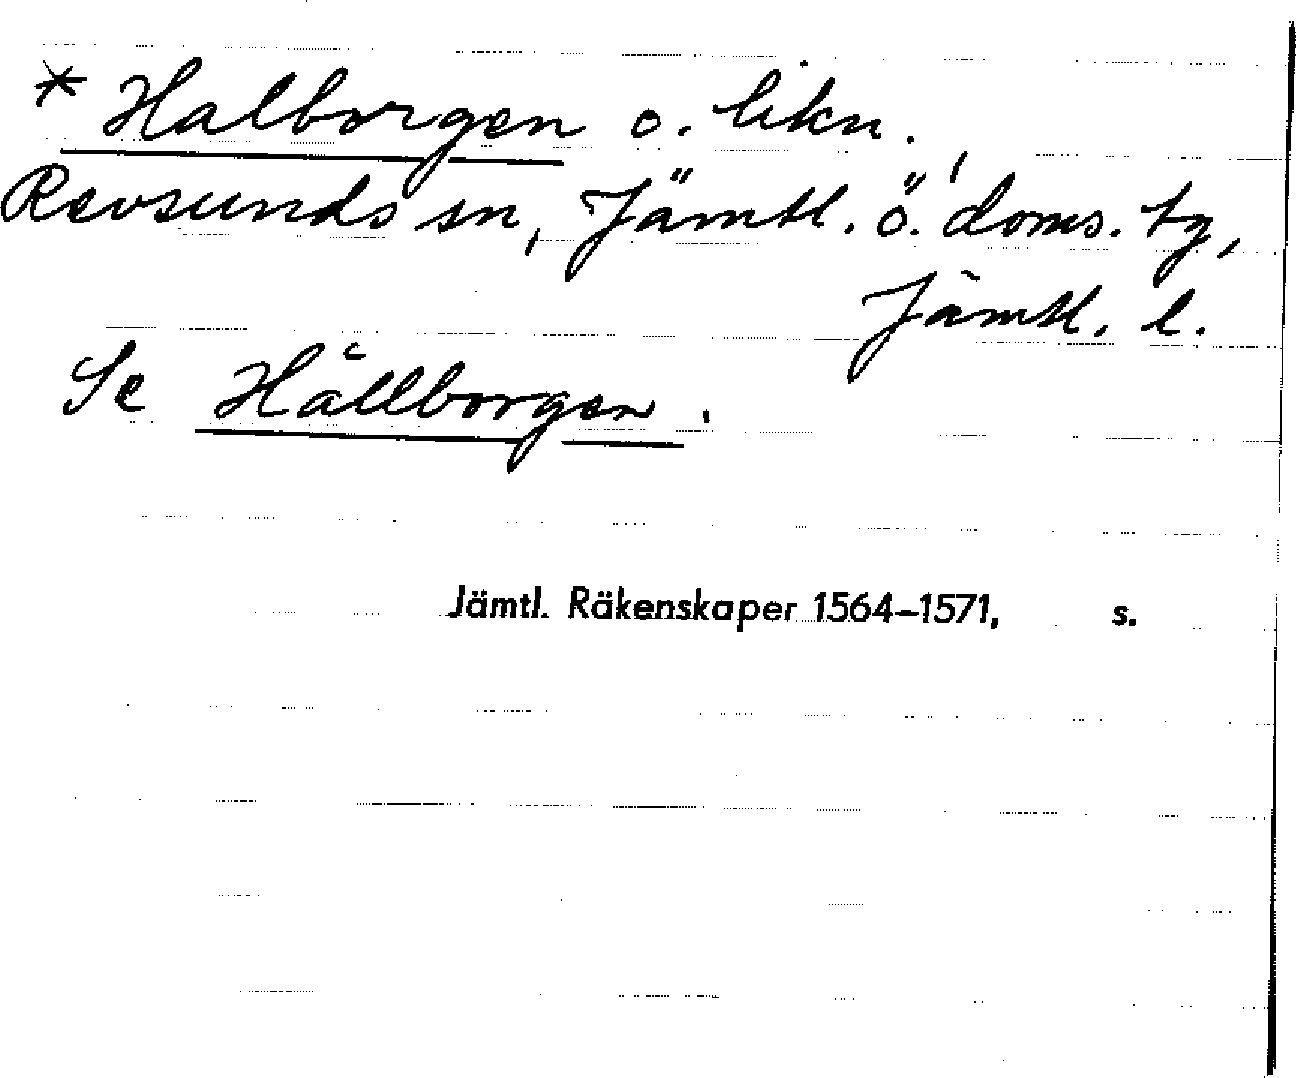 * Halborgen o. likn.
Revsunds sn, Jämtl. ö. doms. tg,
Jämtl. l.
Se Hällborgen.
Jämtl. Räkenskaper 1564–1571, s.